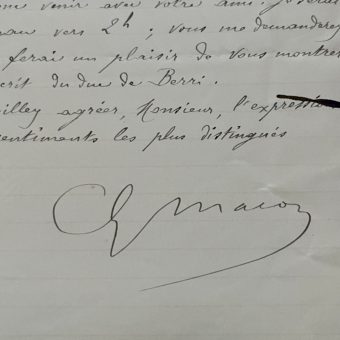 venir avec votre ami. Je serai
vers 2h ; vous me demanderez
ferai un plaisir de vous montrer
du duc de Berri.
agréer, Monsieur, l'expression
sentiments les plus distingués
Macon